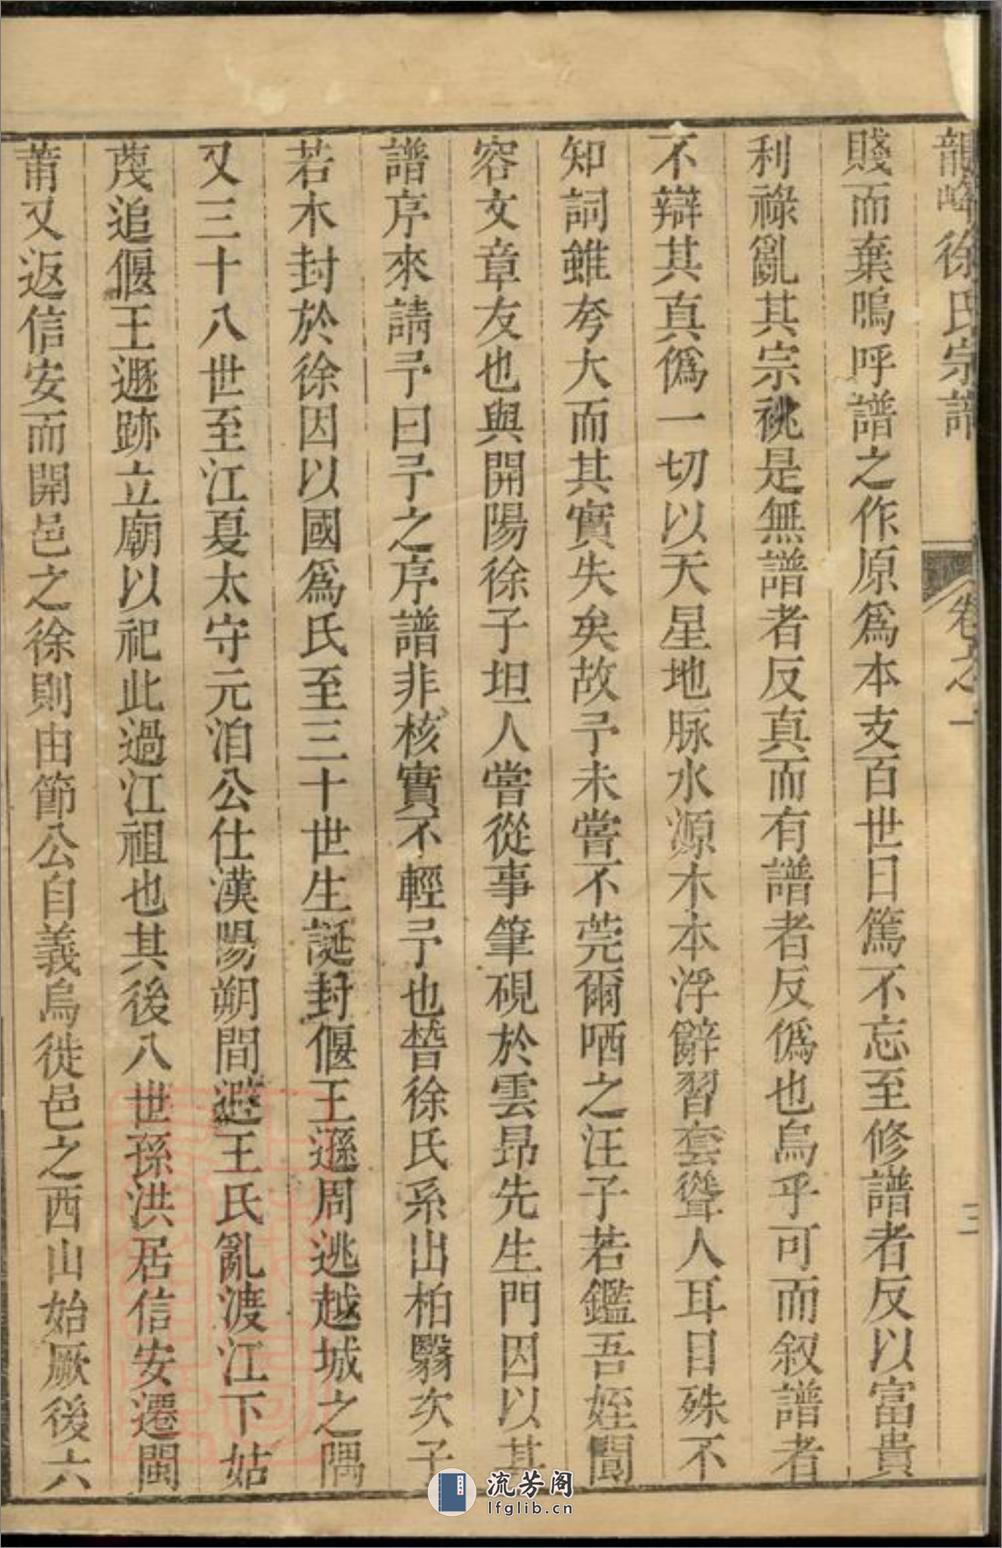 韻峰徐氏宗譜 卷之一 三
賤而棄嗚呼譜之作原爲本支百世曰篤不忘至修譜者反以富貴
利祿亂其宗祧是無譜者反真而有譜者反僞也烏乎可而叙譜者
不辯其真僞一切以天星地脈水源木本浮辭習套聳人耳目殊不
知詞雖夸大而其實失矣故予未嘗不莞爾哂之汪子若鑑吾姪閬
容文章友也與開陽徐子坦人嘗從事筆硯於雲昂先生門因以其
譜序來請予曰予之序譜非核實不輕予也晉徐氏系出柏翳次子
若木封於徐因以國爲氏至三十世生誕封偃王遜周逃越城之隅
又三十八世至江夏太守元洎公仕漢陽朔間避王氏亂渡江下姑
蔑追偃王遯跡立廟以祀此過江祖也其後八世孫洪居信安遷閩
莆又返信安而開邑之徐則由節公自義烏徙邑之西山始厥後六
流芳阁
lfglib.cn